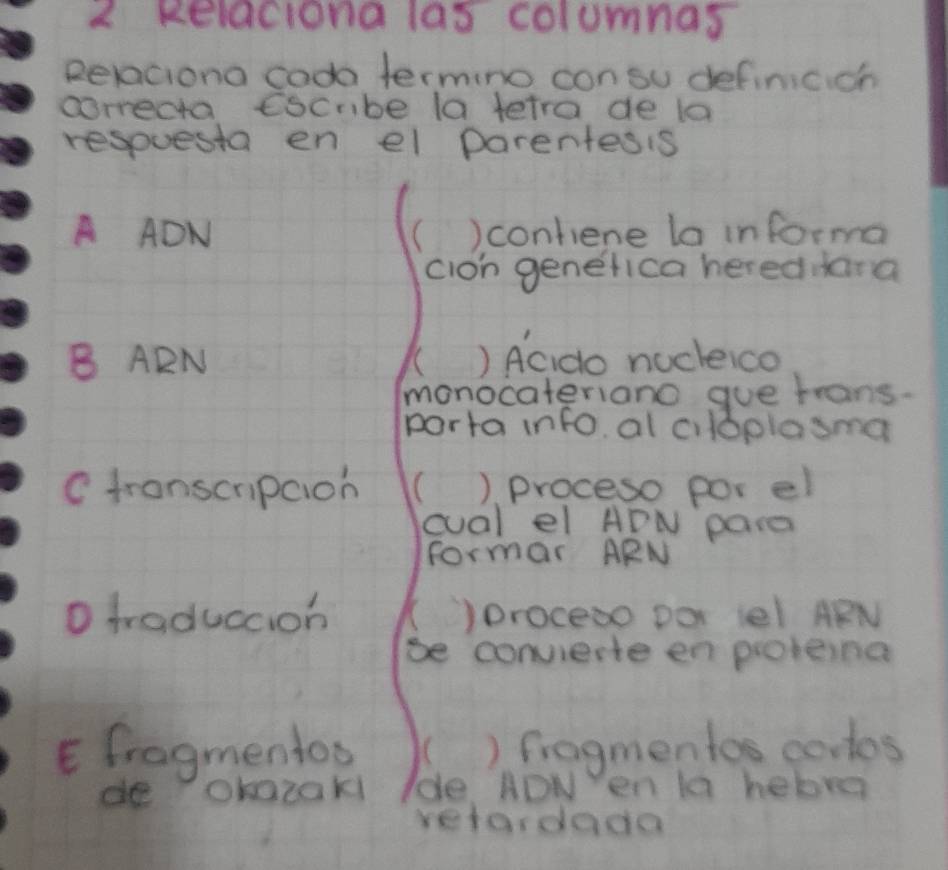 2 Relaciona las columnas
Relaciona cada termino con su definición
correcta Escribe la letra de la
respuesta en el parentesis
A ADN ( ) contiene la informa
ción genética hereditaria
B ARN ( ) Ácido nucleico
monocateriano que trans-
porta info. al citoplasma
C transcripción ( ) proceso por el
cual el ADN para
formar ARN
D traducción ( ) proceso por el ARN
se convierte en proteina
E fragmentos ( ) fragmentos cortos
de okazaki de ADN en la hebra
retardada